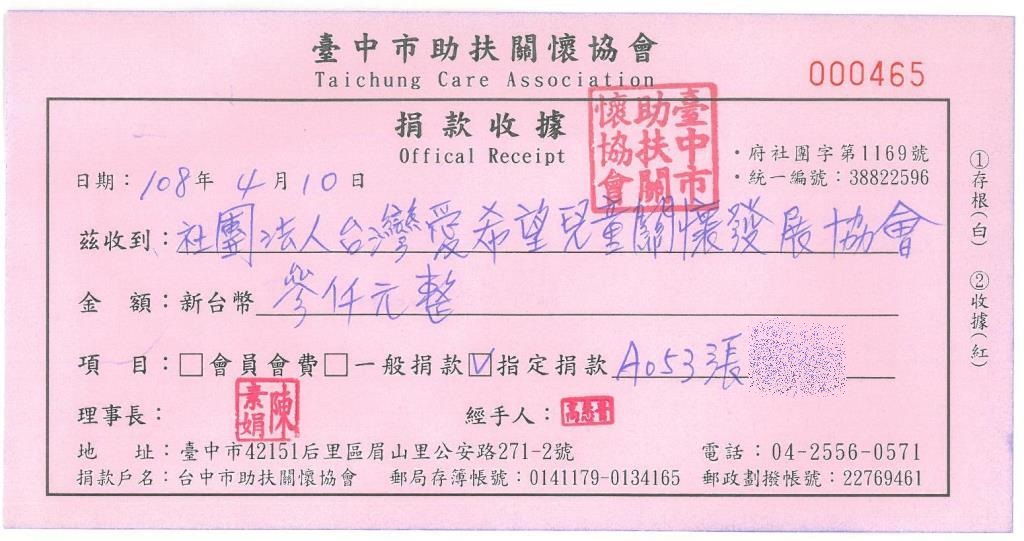 臺中市助扶關懷協會
Taichung Care Association
000465
捐款收據
Offical Receipt
臺中市助扶關懷協會
・府社團字第1169號
・統一編號：38822596
日期：108年 4月10日
茲收到：社團法人台灣愛希望兒童關懷發展協會
金　額：新台幣 參仟元整
項　目：□會員會費□一般捐款☑指定捐款 A053張
理事長：陳素娟
經手人：
地　址：臺中市42151后里區眉山里公安路271-2號
電話：04-2556-0571
捐款戶名：台中市助扶關懷協會　郵局存簿帳號：0141179-0134165　郵政劃撥帳號：22769461
①存根(白)　②收據(紅)